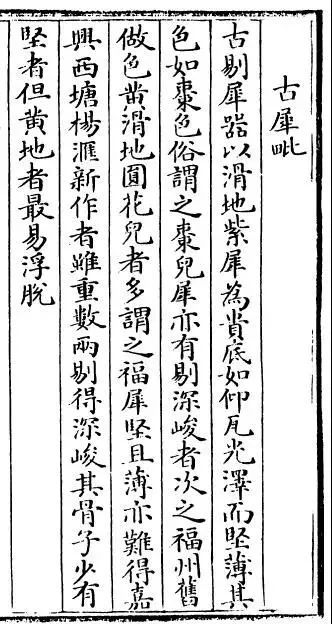 古犀毗
古剔犀器以滑地紫犀為貴底如仰瓦光澤而堅薄其
色如棗色俗謂之棗兒犀亦有剔深峻者次之福州舊
做色黄滑地圓花兒者多謂之福犀堅且薄亦難得嘉
興西塘楊滙新作者雖重數兩剔得深峻其骨子少有
堅者但黄地者最易浮脫